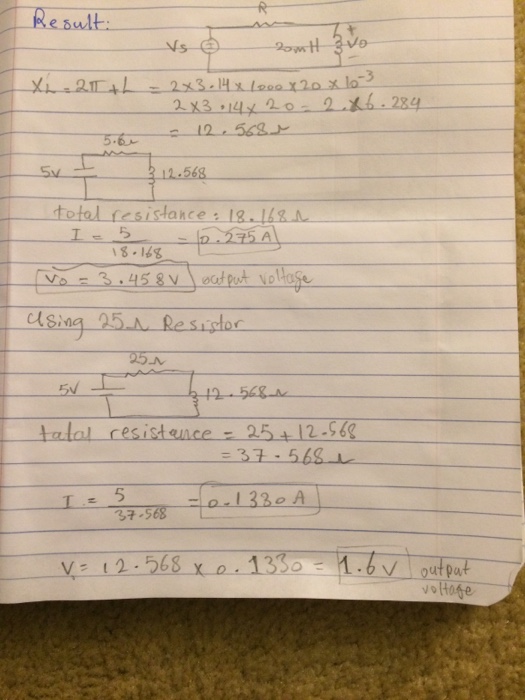 Result:
R
Vs
20mH
+
Vo
-
XL = 2π f L = 2×3.14×1000×20×10⁻³
2×3.14×20 = 2.×6.284
= 12.568Ω
5.6Ω
5V
12.568
total resistance: 18.168Ω
I = 5/18.168 = 0.275A
Vo = 3.458V output voltage
Using 25Ω Resistor
25Ω
5V
12.568Ω
total resistance = 25+12.568
= 37.568Ω
I = 5/37.568 = 0.1330A
V = 12.568 × 0.1330 = 1.6V output
voltage